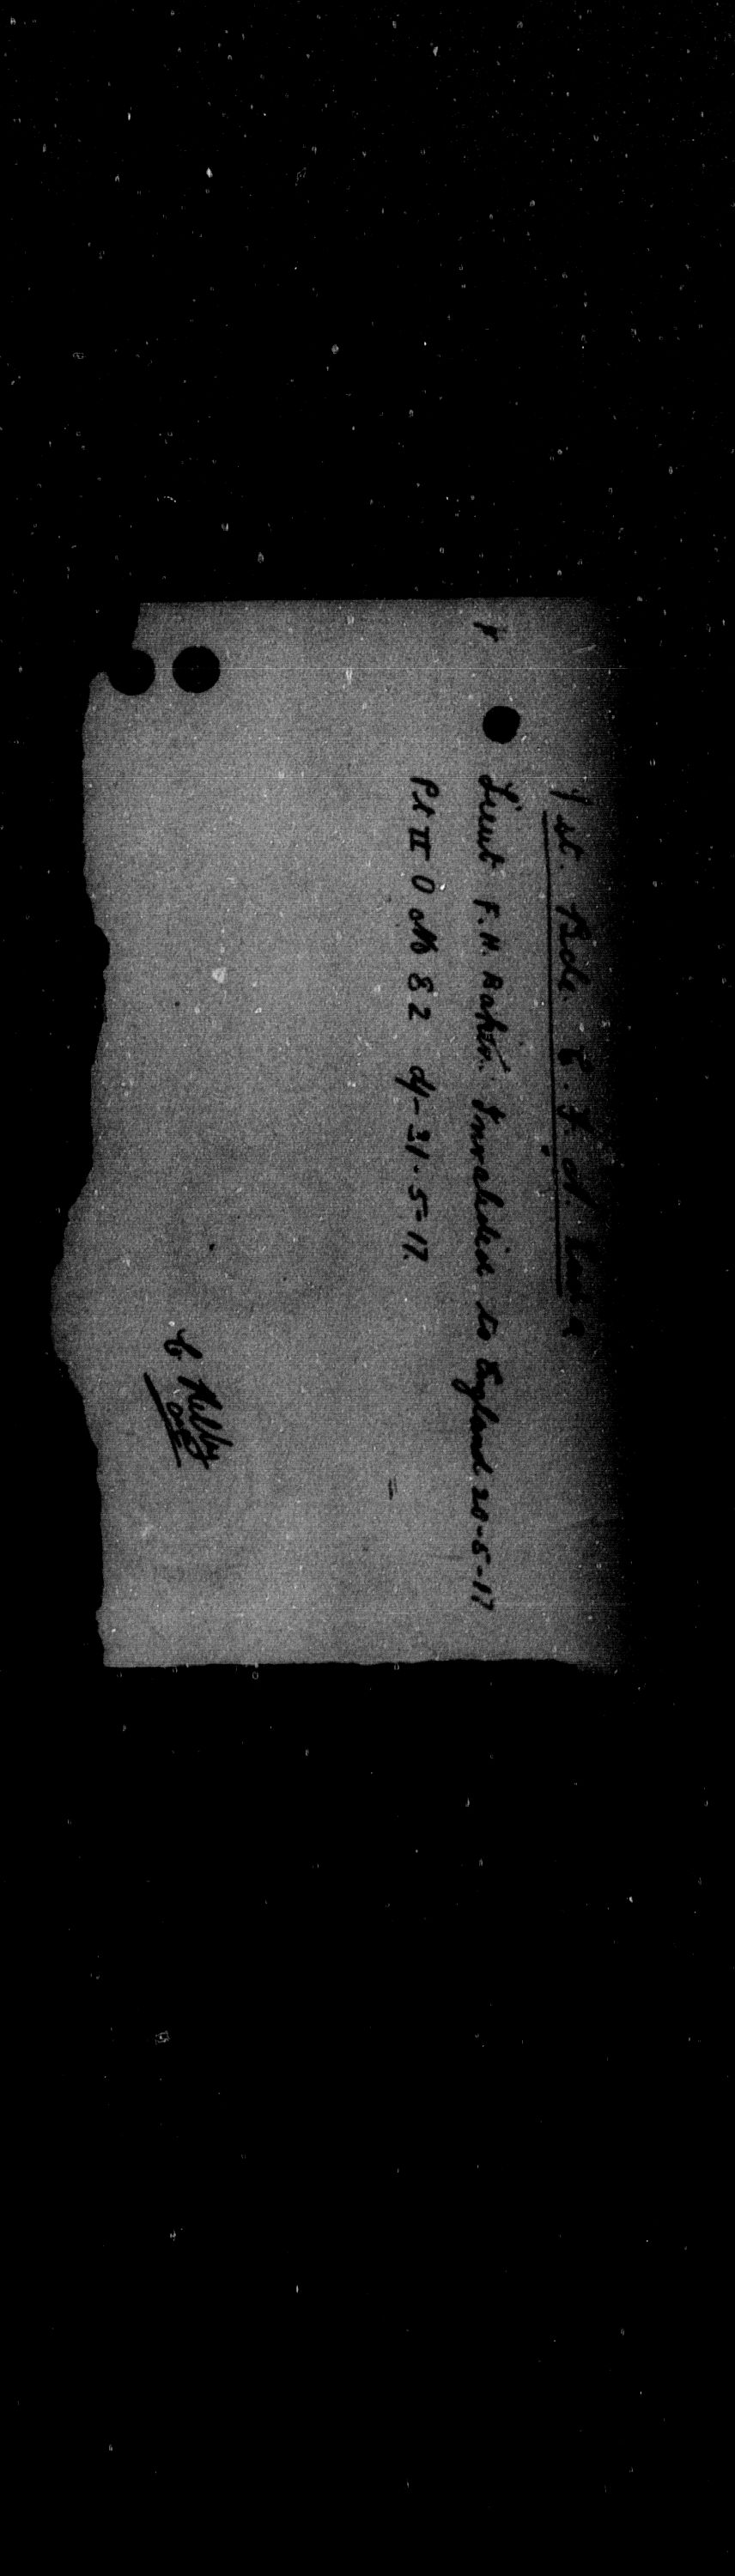 1st. Bde. C. F. A.
Lieut F. H. Baker. Invalided to England 20-5-17
Pt II O 82 d/- 21-5-17.